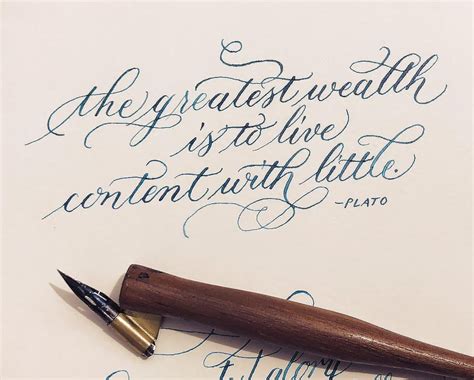 the greatest wealth
is to live
content with little.
-PLATO